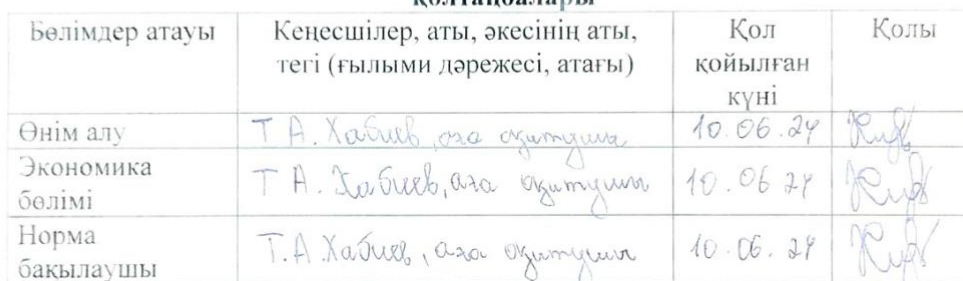 қолтаңбалары
Бөлімдер атауы
Кеңесшілер, аты, әкесінің аты,
тегі (ғылыми дәрежесі, атағы)
Қол
қойылған
күні
Қолы
Өнім алу
Т А. Хабиев, аға оқытушы
10.06.24
Экономика
бөлімі
Т А. Хабиев, аға оқытушы
10.06 24
Норма
бақылаушы
Т.А.Хабиев, аға оқытушы
10.06.24